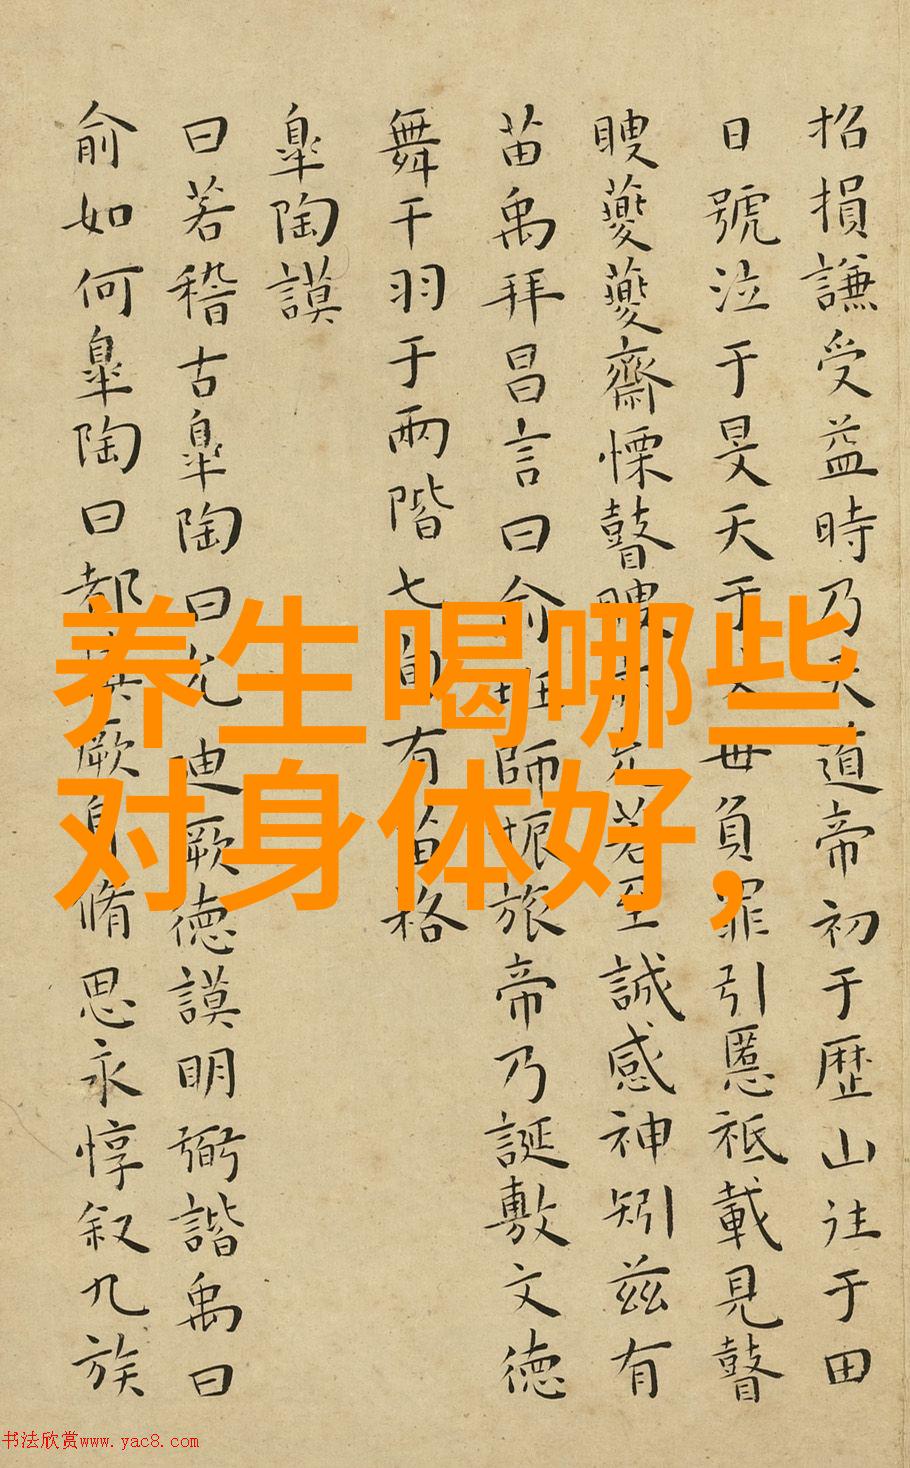 招損謙受益時乃天道帝初于歷山往于田
日號泣于旻天于父母負罪引慝祗載見瞽
瞍夔夔齋慄瞽瞍亦允若至誠感神矧茲有
苗禹拜昌言曰俞班師振旅帝乃誕敷文德
舞干羽于兩階七旬有苗格
皐陶謨
曰若稽古皐陶曰允迪厥德謨明弼諧禹曰
俞如何皐陶曰都慎厥身脩思永惇叙九族
养生喝哪些
对身体好,
书法欣赏www.yac8.com